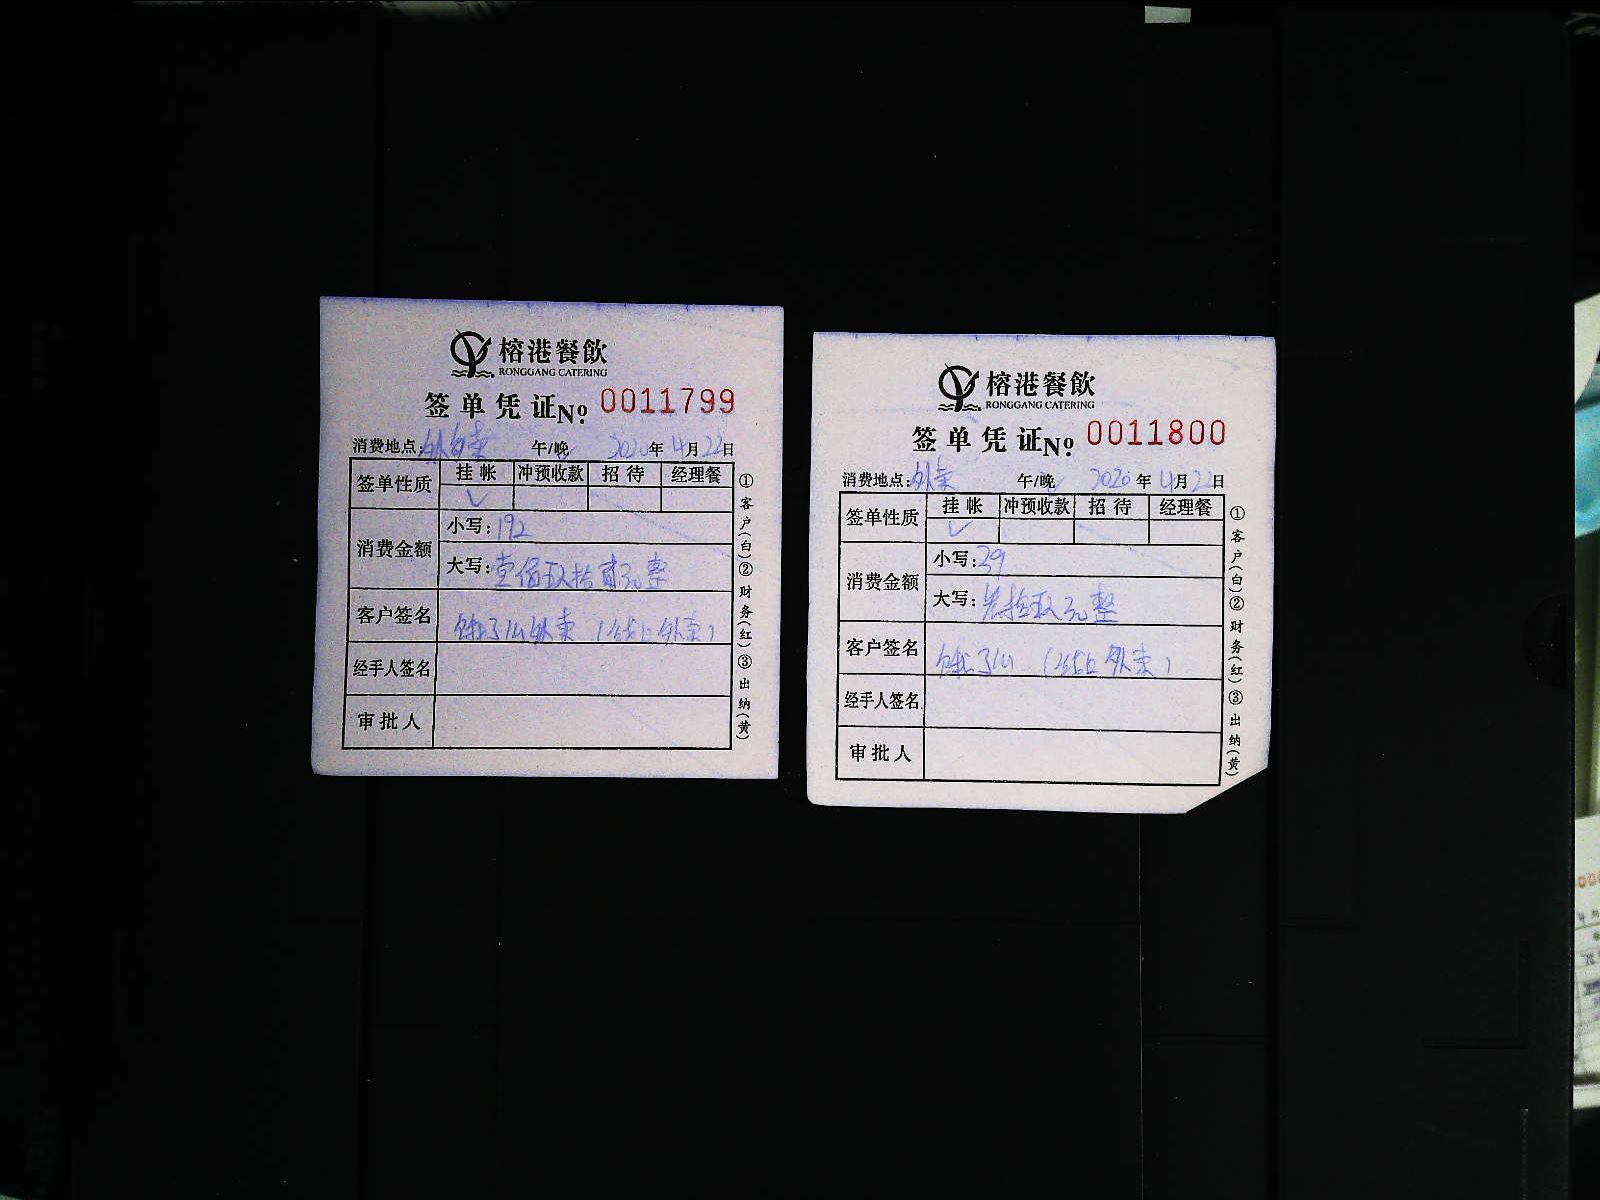 榕港餐飲
RONGGANG CATERING
签单凭证 No 0011799
消费地点: 外卖 午/晚 2020年4月22日
签单性质 挂帐 冲预收款 招待 经理餐
✓
消费金额 小写: 192
大写: 壹佰玖拾贰元整
客户签名 饿了么外卖 ( 线上外卖 )
经手人签名
审批人
①客户(白)②财务(红)③出纳(黄)
榕港餐飲
RONGGANG CATERING
签单凭证 No 0011800
消费地点: 外卖 午/晚 2020年4月22日
签单性质 挂帐 冲预收款 招待 经理餐
✓
消费金额 小写: 39
大写: 叁拾玖元整
客户签名 饿了么 ( 线上外卖 )
经手人签名
审批人
①客户(白)②财务(红)③出纳(黄)